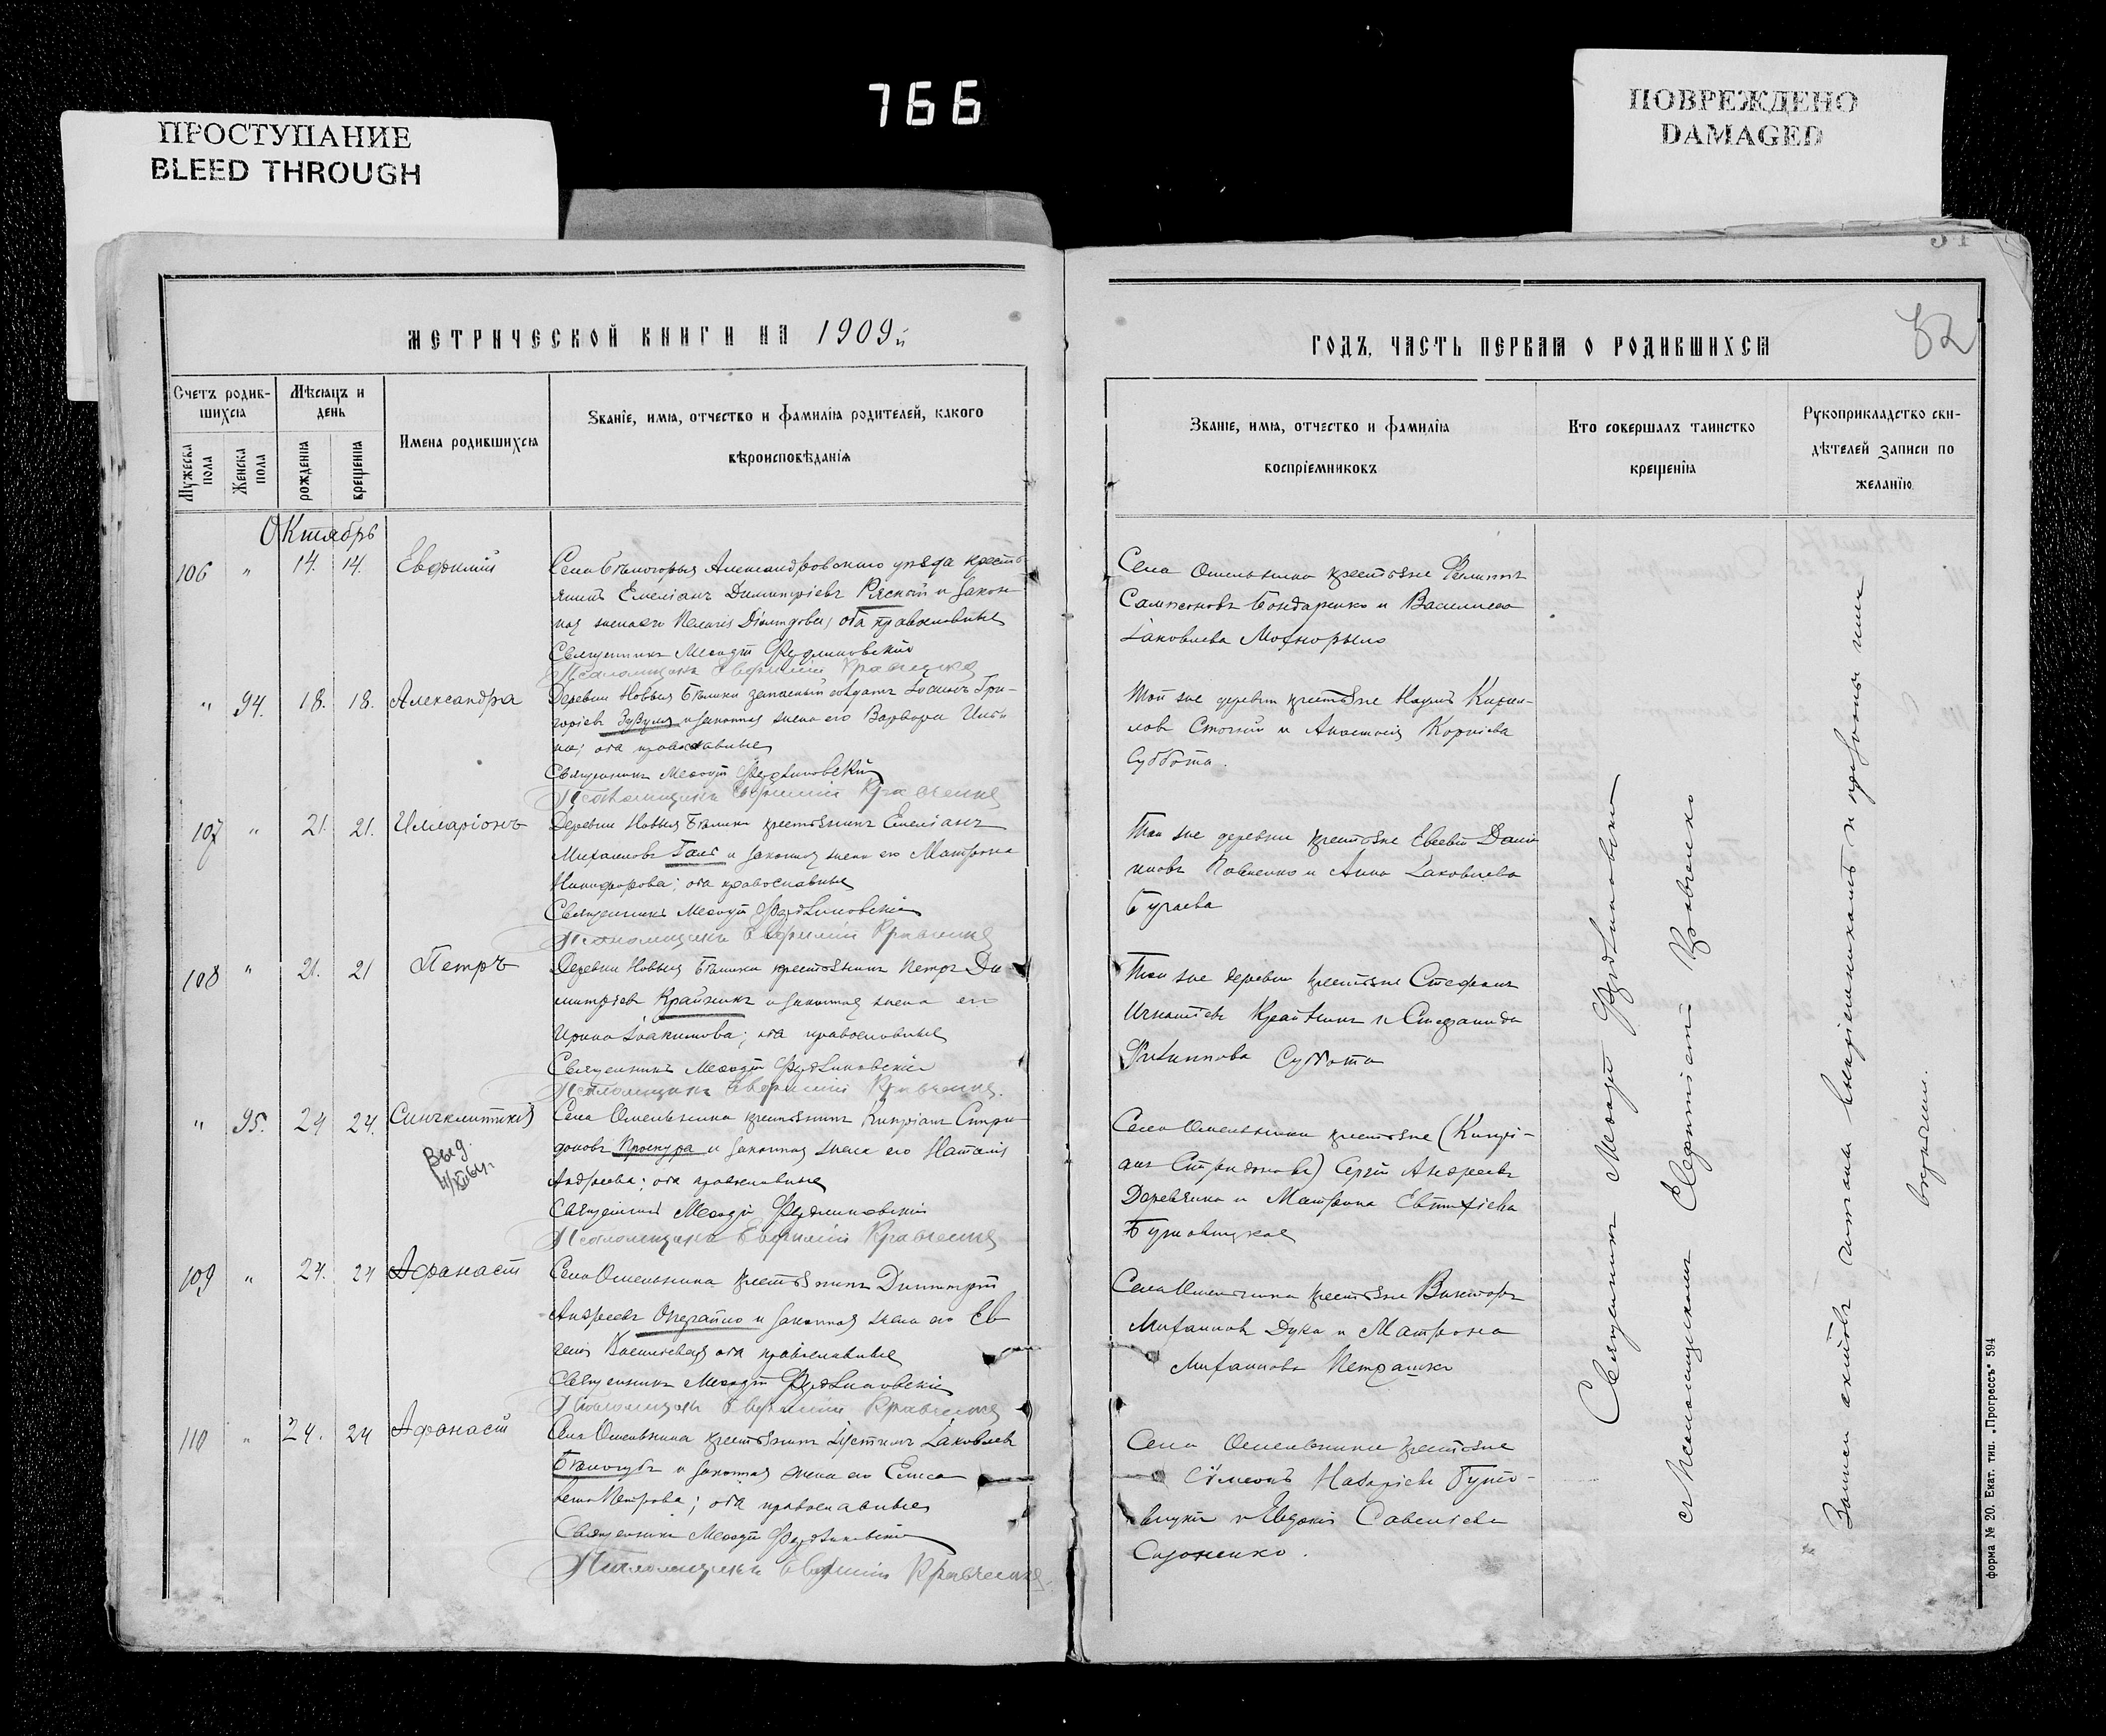 766
ПРОСТУПАНИЕ
BLEED THROUGH
ПОВРЕЖДЕНО
DAMAGED
МЕТРИЧЕСКОЙ КНИГИ НА 1909й
Счетъ родив-
шихся
Мѣсяцъ и
день
Мужеска
пола
Женска
пола
рожденія
крещенія
Имена родившихся
Званіе, имя, отчество и фамилія родителей, какого
вѣроисповѣданія
Октябрь
106 " 14. 14. Евфимій
Села Бѣлогорья Александровскаго уѣзда кресть
янинъ Емеліанъ Димитріевъ Рясный и закон
ная жена его Пелагія Діомидова; оба православные
Священникъ Меѳодій
Псаломщикъ Евфимій Кравченко
" 94. 18. 18. Александра
Деревни Новыя Бѣлики запасный солдатъ Іосифъ Гри-
горіевъ и законная жена его Варвара
на; оба православные
Священникъ Меѳодій
Псаломщикъ Евфимій Кравченко
107 " 21. 21. Илларіонъ
Деревни Новыя Бѣлики крестьянинъ Емеліанъ
Михаиловъ и законная жена его Матрона
Никифорова; оба православные
Священникъ Меѳодій
Псаломщикъ Евфимій Кравченко
108 " 21. 21 Петръ
Деревни Новыя Бѣлики крестьянинъ Петръ Ди
митріевъ Крайникъ и законная жена его
Ирина Іоакимова; оба православные
Священникъ Меѳодій
Псаломщикъ Евфимій Кравченко.
" 95. 24 24. Синклитикія
Выд.
Села Омельника крестьянинъ Кипріанъ Спири
доновъ Проскура и законная жена его Наталія
Андреева; оба православные
Священникъ Меѳодій
Псаломщикъ Евфимій Кравченко
109 " 24. 24 Афанасій
Села Омельника крестьянинъ Димитрій
Андреевъ и законная жена его Ев
генія Васильева; оба православные
Священникъ Меѳодій
Псаломщикъ Евфимій Кравченко
110 " 24. 24 Афанасій
Села Омельника крестьянинъ Іустинъ Іаковлевъ
и законная жена его Елиса
вета Петрова; оба православные
Священникъ Меѳодій
Псаломщикъ Евфимій Кравченко.
ГОДЪ, ЧАСТЬ ПЕРВАЯ О РОДИВШИХСЯ
Званіе, имя, отчество и фамилія
воспріемниковъ
Кто совершалъ таинство
крещенія
Рукоприкладство сви-
дѣтелей записи по
желанію
Села Омельника крестьяне Филиппъ
Сампсоновъ Бондаренко и Василиса
Іаковлева Мохнорыло
Той же деревни крестьяне Наумъ Кирил-
ловъ и Анастасія Корніева
Суббота.
Той же деревни крестьяне Евсевій Дани
иловъ Павленко и Анна Іаковлева
Бугаева
Той же деревни крестьяне Стефанъ
Игнатіевъ Крайникъ и Стефанида
Филиппова Суббота
Села Омельника крестьяне (Кипрі-
анъ Спиридоновъ) Сергій Андреевъ
Деревянко и Матрона Евтихіева
Села Омельника крестьяне Викторъ
Михаиловъ Дука и Матрона
Михаилова Петрашко
Села Омельника крестьяне
Симеонъ Назаріевъ
и Евдокія Савеліева
Священникъ Меѳодій
съ Псаломщикомъ Евфиміемъ Кравченко
Записи актовъ читаны воспріемникамъ и признаны ими
вѣрными.
форма № 20. Екат. тип. „Прогрессъ" 594